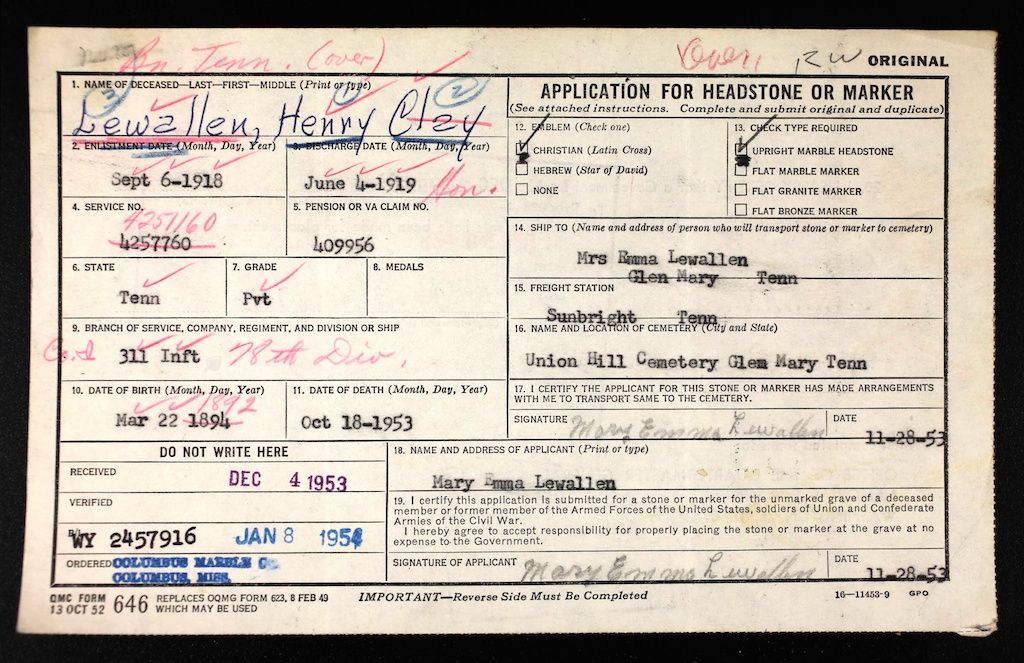 Bn. Tenn. (over)
Over, RW ORIGINAL
1. NAME OF DECEASED—LAST—FIRST—MIDDLE (Print or type)
3 1 2
Lewallen, Henry Clay
2. ENLISTMENT DATE (Month, Day, Year)
3. DISCHARGE DATE (Month, Day, Year)
Sept 6-1918
June 4-1919 Hon.
4. SERVICE NO.
5. PENSION OR VA CLAIM NO.
4251160
4257760
409956
6. STATE
7. GRADE
8. MEDALS
Tenn
Pvt
9. BRANCH OF SERVICE, COMPANY, REGIMENT, AND DIVISION OR SHIP
Co. I 311 Inft 78th Div.
10. DATE OF BIRTH (Month, Day, Year)
11. DATE OF DEATH (Month, Day, Year)
1892
Mar 22 1894
Oct 18-1953
APPLICATION FOR HEADSTONE OR MARKER
(See attached instructions. Complete and submit original and duplicate)
12. EMBLEM (Check one)
CHRISTIAN (Latin Cross)
HEBREW (Star of David)
NONE
13. CHECK TYPE REQUIRED
UPRIGHT MARBLE HEADSTONE
FLAT MARBLE MARKER
FLAT GRANITE MARKER
FLAT BRONZE MARKER
14. SHIP TO (Name and address of person who will transport stone or marker to cemetery)
Mrs Emma Lewallen
Glen Mary Tenn
15. FREIGHT STATION
Sunbright Tenn
16. NAME AND LOCATION OF CEMETERY (City and State)
Union Hill Cemetery Glem Mary Tenn
17. I CERTIFY THE APPLICANT FOR THIS STONE OR MARKER HAS MADE ARRANGEMENTS
WITH ME TO TRANSPORT SAME TO THE CEMETERY.
SIGNATURE Mary Emma Lewallen DATE
11-28-53
DO NOT WRITE HERE
RECEIVED DEC 4 1953
VERIFIED
WY 2457916 JAN 8 1954
ORDERED COLUMBUS MARBLE CO.
COLUMBUS, MISS.
18. NAME AND ADDRESS OF APPLICANT (Print or type)
Mary Emma Lewallen
19. I certify this application is submitted for a stone or marker for the unmarked grave of a deceased
member or former member of the Armed Forces of the United States, soldiers of Union and Confederate
Armies of the Civil War.
I hereby agree to accept responsibility for properly placing the stone or marker at the grave at no
expense to the Government.
SIGNATURE OF APPLICANT Mary Emma Lewallen DATE
11-28-53
QMC FORM
13 OCT 52 646 REPLACES OQMG FORM 623, 8 FEB 49
WHICH MAY BE USED
IMPORTANT—Reverse Side Must Be Completed
16—11453-9 GPO